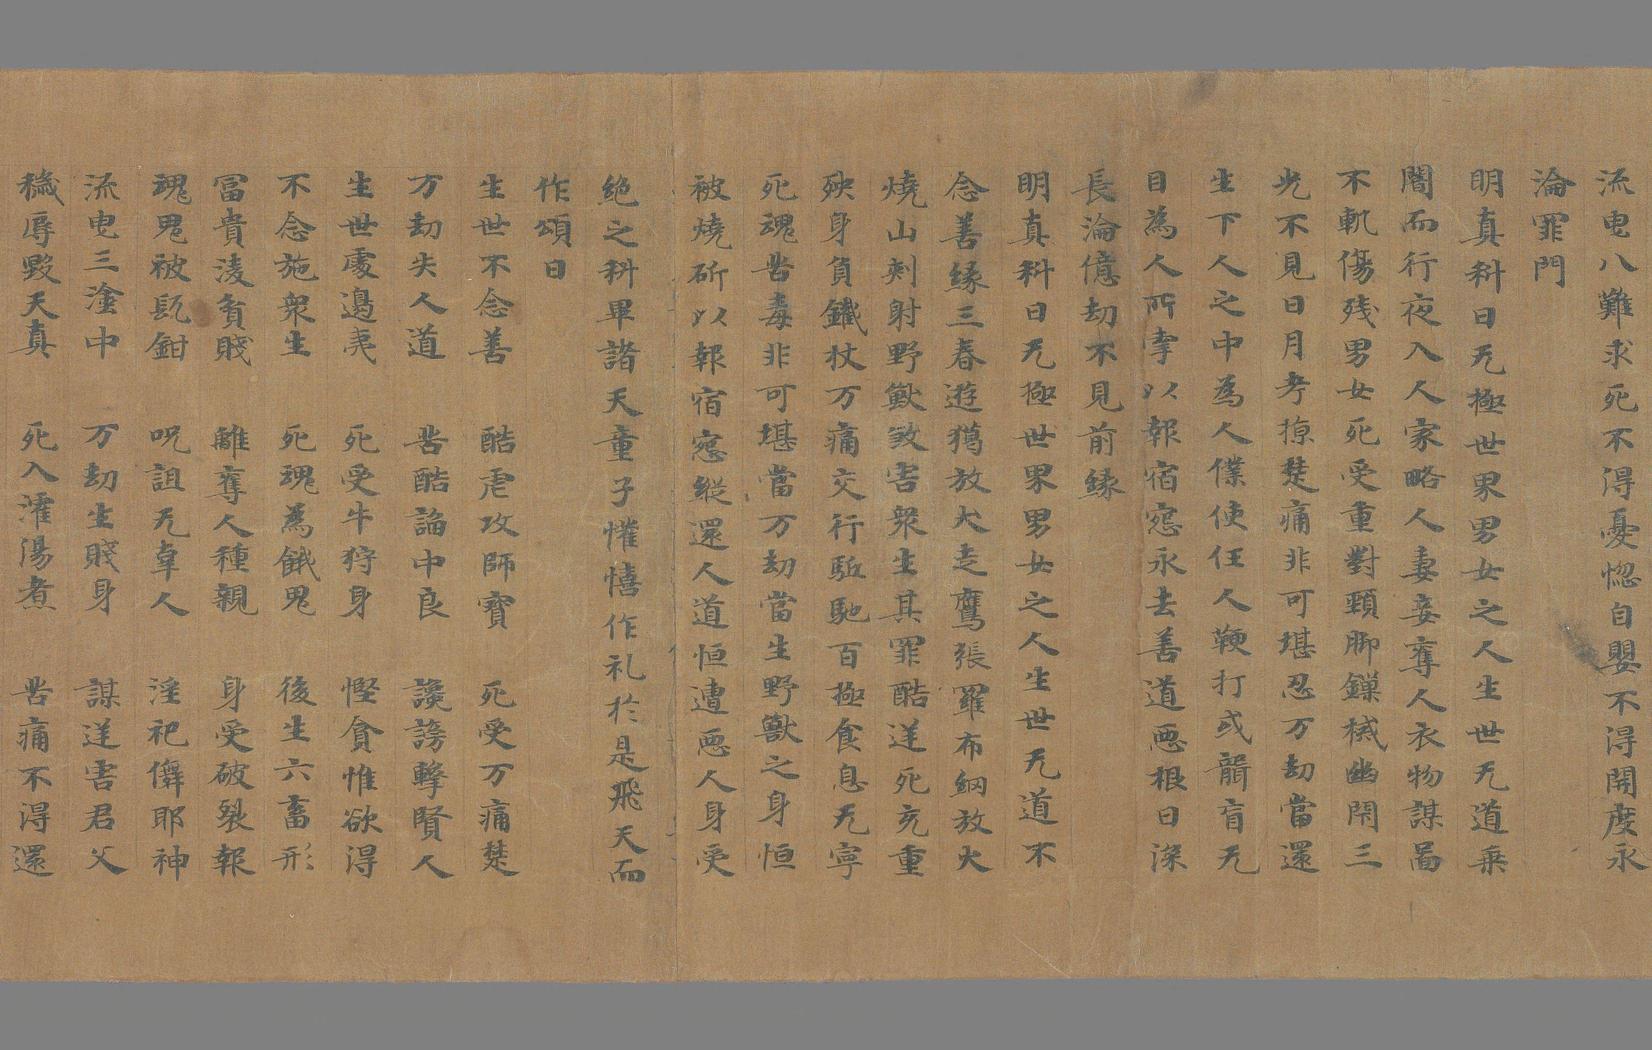 流曳八難求死不得憂惚自嬰不得開度永
淪罪門
明真科曰无極世界男女之人生世无道乗
闇而行夜入人家略人妻妾奪人衣物謀啚
不軌傷残男女死受重對頸脚鏁械幽閇三
光不見日月考掠楚痛非可堪忍万劫當還
生下人之中為人僕使任人鞭打或聾盲无
目為人所牽以報宿𢙣永去善道𢙣根日深
長淪億劫不見前縁
明真科曰无極世界男女之人生世无道不
念善縁三春遊獦放犬走鷹張羅布網放火
燒山刺射野獸敓害衆生其罪酷逆死充重
殃身負鐵杖万痛交行駈馳百極食息无寧
死魂苦毒非可堪當万劫當生野獸之身恒
被燒斫以報宿𢙣縱還人道恒遭𢙣人身受
絶之科畢諸天童子懽憘作礼於是飛天而
作頌曰
生世不念善 酷虐攻師寶 死受万痛楚
万劫失人道 苦酷論中良 讒謗擊賢人
生世處邊夷 死受牛狩身 慳貪惟欲得
不念施衆生 死魂為餓鬼 後生六畜形
冨貴淩貧賤 離奪人種親 身受破裂報
魂鬼被髡鉗 呪詛无辜人 淫祀僻耶神
流曳三塗中 万劫生賤身 謀逆害君父
穢辱毀天真 死入濩湯煮 苦痛不得還